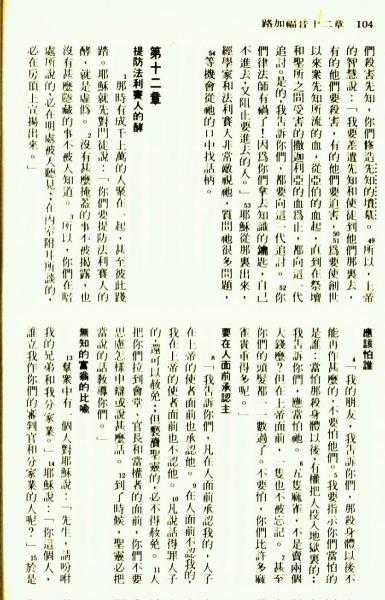 路加福音十二章 104
們殺害先知，你們修造先知的墳墓。49所以，上帝
的智慧說：『我要差遣先知和使徒到他們那裏去，
有的他們要殺害，有的他們要迫害，』50 51爲要使創世
以來衆先知所流的血，從亞伯的血起，直到在祭壇
和聖所之間受害的撒迦利亞的血爲止，都向這一代
追討。是的，我告訴你們，都要向這一代追討。52你
們律法師有禍了！因爲你們拿去知識的鑰匙，自己
不進去，又阻止要進去的人。」53耶穌從那裏出來，
經學家和法利賽人非常敵視祂，質問祂很多問題，
54等機會從祂的口中找話柄。
第十二章
提防法利賽人的酵
1那時有成千上萬的人聚在一起，甚至彼此踐
踏。耶穌就先對門徒說：「你們要提防法利賽人的
酵，就是虛僞。2沒有甚麽掩蓋的事不被揭露，也
沒有甚麽隱藏的事不被人知道。3所以，你們在暗
處所說的，必在明處被人聽見；在內室附耳所談的，
必在房頂上宣揚出來。」
應該怕誰
4「我的朋友，我告訴你們，那殺身體以後不
能再作甚麽的，不要怕他們。5我要指示你們當怕的
是誰：當怕那殺身體以後，有權把人投入地獄裏的；
我告訴你們，應當怕祂。6五隻麻雀，不是賣兩個
大錢麽？但在上帝面前，一隻也不被忘記。7甚至
你們的頭髮都一一數過了。不要怕，你們比許多麻
雀貴重得多呢。」
要在人面前承認主
8「我告訴你們，凡在人面前承認我的，人子
在上帝的使者面前也承認他。9在人面前不認我的，
我在上帝的使者面前也不認他。10凡說話得罪人子
的，還可以赦免；但褻瀆聖靈的，必不得赦免。11人
把你們拉到會堂、官長和當權者的面前，你們不要
思慮怎樣申辯或說甚麽話。12到了時候，聖靈必把
當說的話教導你們。」
無知的富翁的比喻
13羣衆中有一個人對耶穌說：「先生，請吩咐
我的兄弟和我分家業。」14耶穌說：「你這個人，
誰立我作你們的審判官和分家業的人呢？」15於是